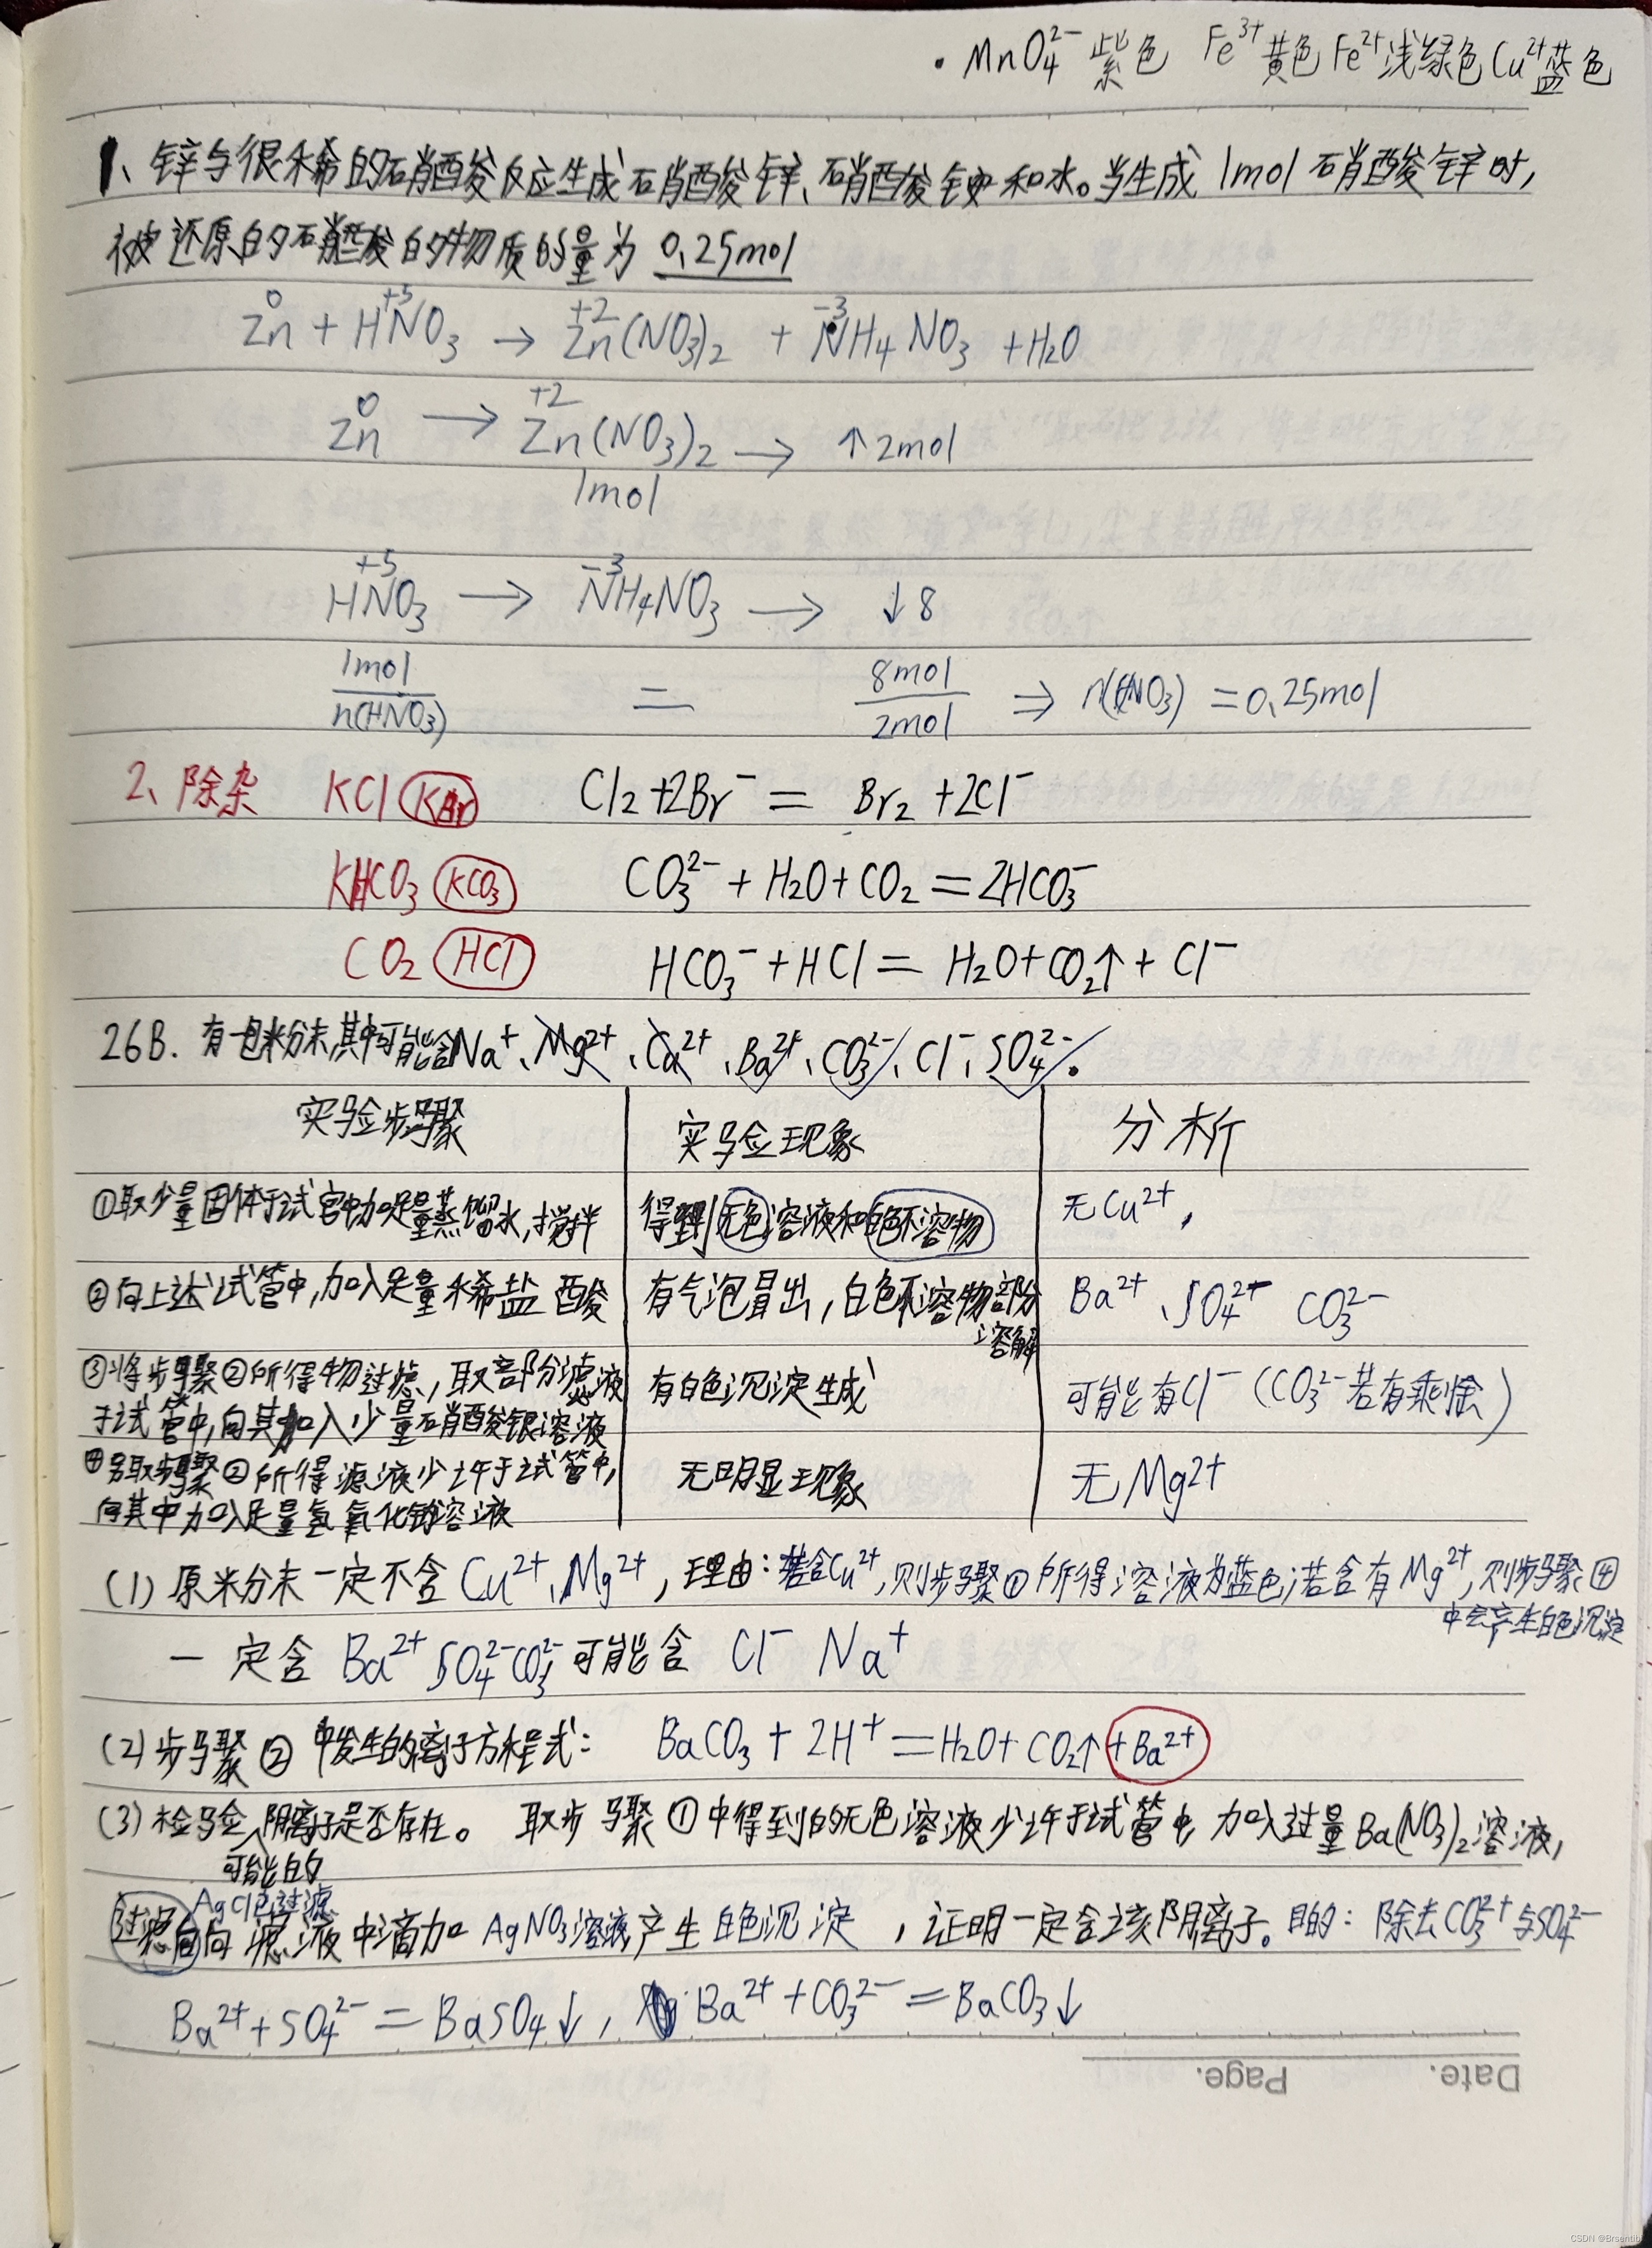 · MnO₄²⁻ 紫色 Fe³⁺黄色 Fe²⁺浅绿色 Cu²⁺蓝色
1、锌与很稀的硝酸反应生成硝酸锌、硝酸铵和水。当生成 1mol 硝酸锌时,
被还原的硝酸的物质的量为 0.25mol
0 +5 +2 -3
Zn + HNO₃ → Zn(NO₃)₂ + NH₄NO₃ + H₂O
0 +2
Zn → Zn(NO₃)₂ → ↑2mol
1mol
+5 -3
HNO₃ → NH₄NO₃ → ↓8
1mol/n(HNO₃) = 8mol/2mol ⇒ n(HNO₃) = 0.25mol
2、除杂 KCl (KBr) Cl₂+2Br⁻ = Br₂ +2Cl⁻
KHCO₃ (KCO₃) CO₃²⁻ + H₂O + CO₂ = 2HCO₃⁻
CO₂ (HCl) HCO₃⁻ + HCl = H₂O+CO₂↑ + Cl⁻
26B. 有一包粉末,其中可能含Na⁺、Mg²⁺、Cu²⁺、Ba²⁺、CO₃²⁻、Cl⁻、SO₄²⁻.
实验步骤 实验现象 分析
①取少量固体于试管中加足量蒸馏水,搅拌 得到无色溶液和白色不溶物 无Cu²⁺,
②向上述试管中,加入足量稀盐酸 有气泡冒出,白色不溶物部分 Ba²⁺、SO₄²⁺ CO₃²⁻
溶解
③将步骤②所得物过滤,取部分滤液 有白色沉淀生成 可能有Cl⁻(CO₃²⁻若有剩馀)
于试管中,向其加入少量硝酸银溶液
④另取步骤②所得滤液少许于试管中, 无明显现象 无Mg²⁺
向其中加入足量氢氧化钠溶液
(1) 原粉末一定不含 Cu²⁺、Mg²⁺,理由:若含Cu²⁺,则步骤①所得溶液为蓝色;若含有Mg²⁺,则步骤④
中会产生白色沉淀
一定含 Ba²⁺ SO₄²⁻ CO₃²⁻ 可能含 Cl⁻ Na⁺
(2) 步骤② 中发生的离子方程式: BaCO₃ + 2H⁺ = H₂O + CO₂↑ + Ba²⁺
(3) 检验阴离子是否存在。 取步骤①中得到的无色溶液少许于试管中 加入过量Ba(NO₃)₂溶液,
可能的
AgCl已过滤
过滤后向滤液中滴加 AgNO₃溶液产生白色沉淀,证明一定含该阴离子。目的:除去CO₃²⁺与SO₄²⁻
Ba²⁺+SO₄²⁻ = BaSO₄↓, Ba²⁺+CO₃²⁻ = BaCO₃↓
Date. Page.
CSDN @Brsentibi